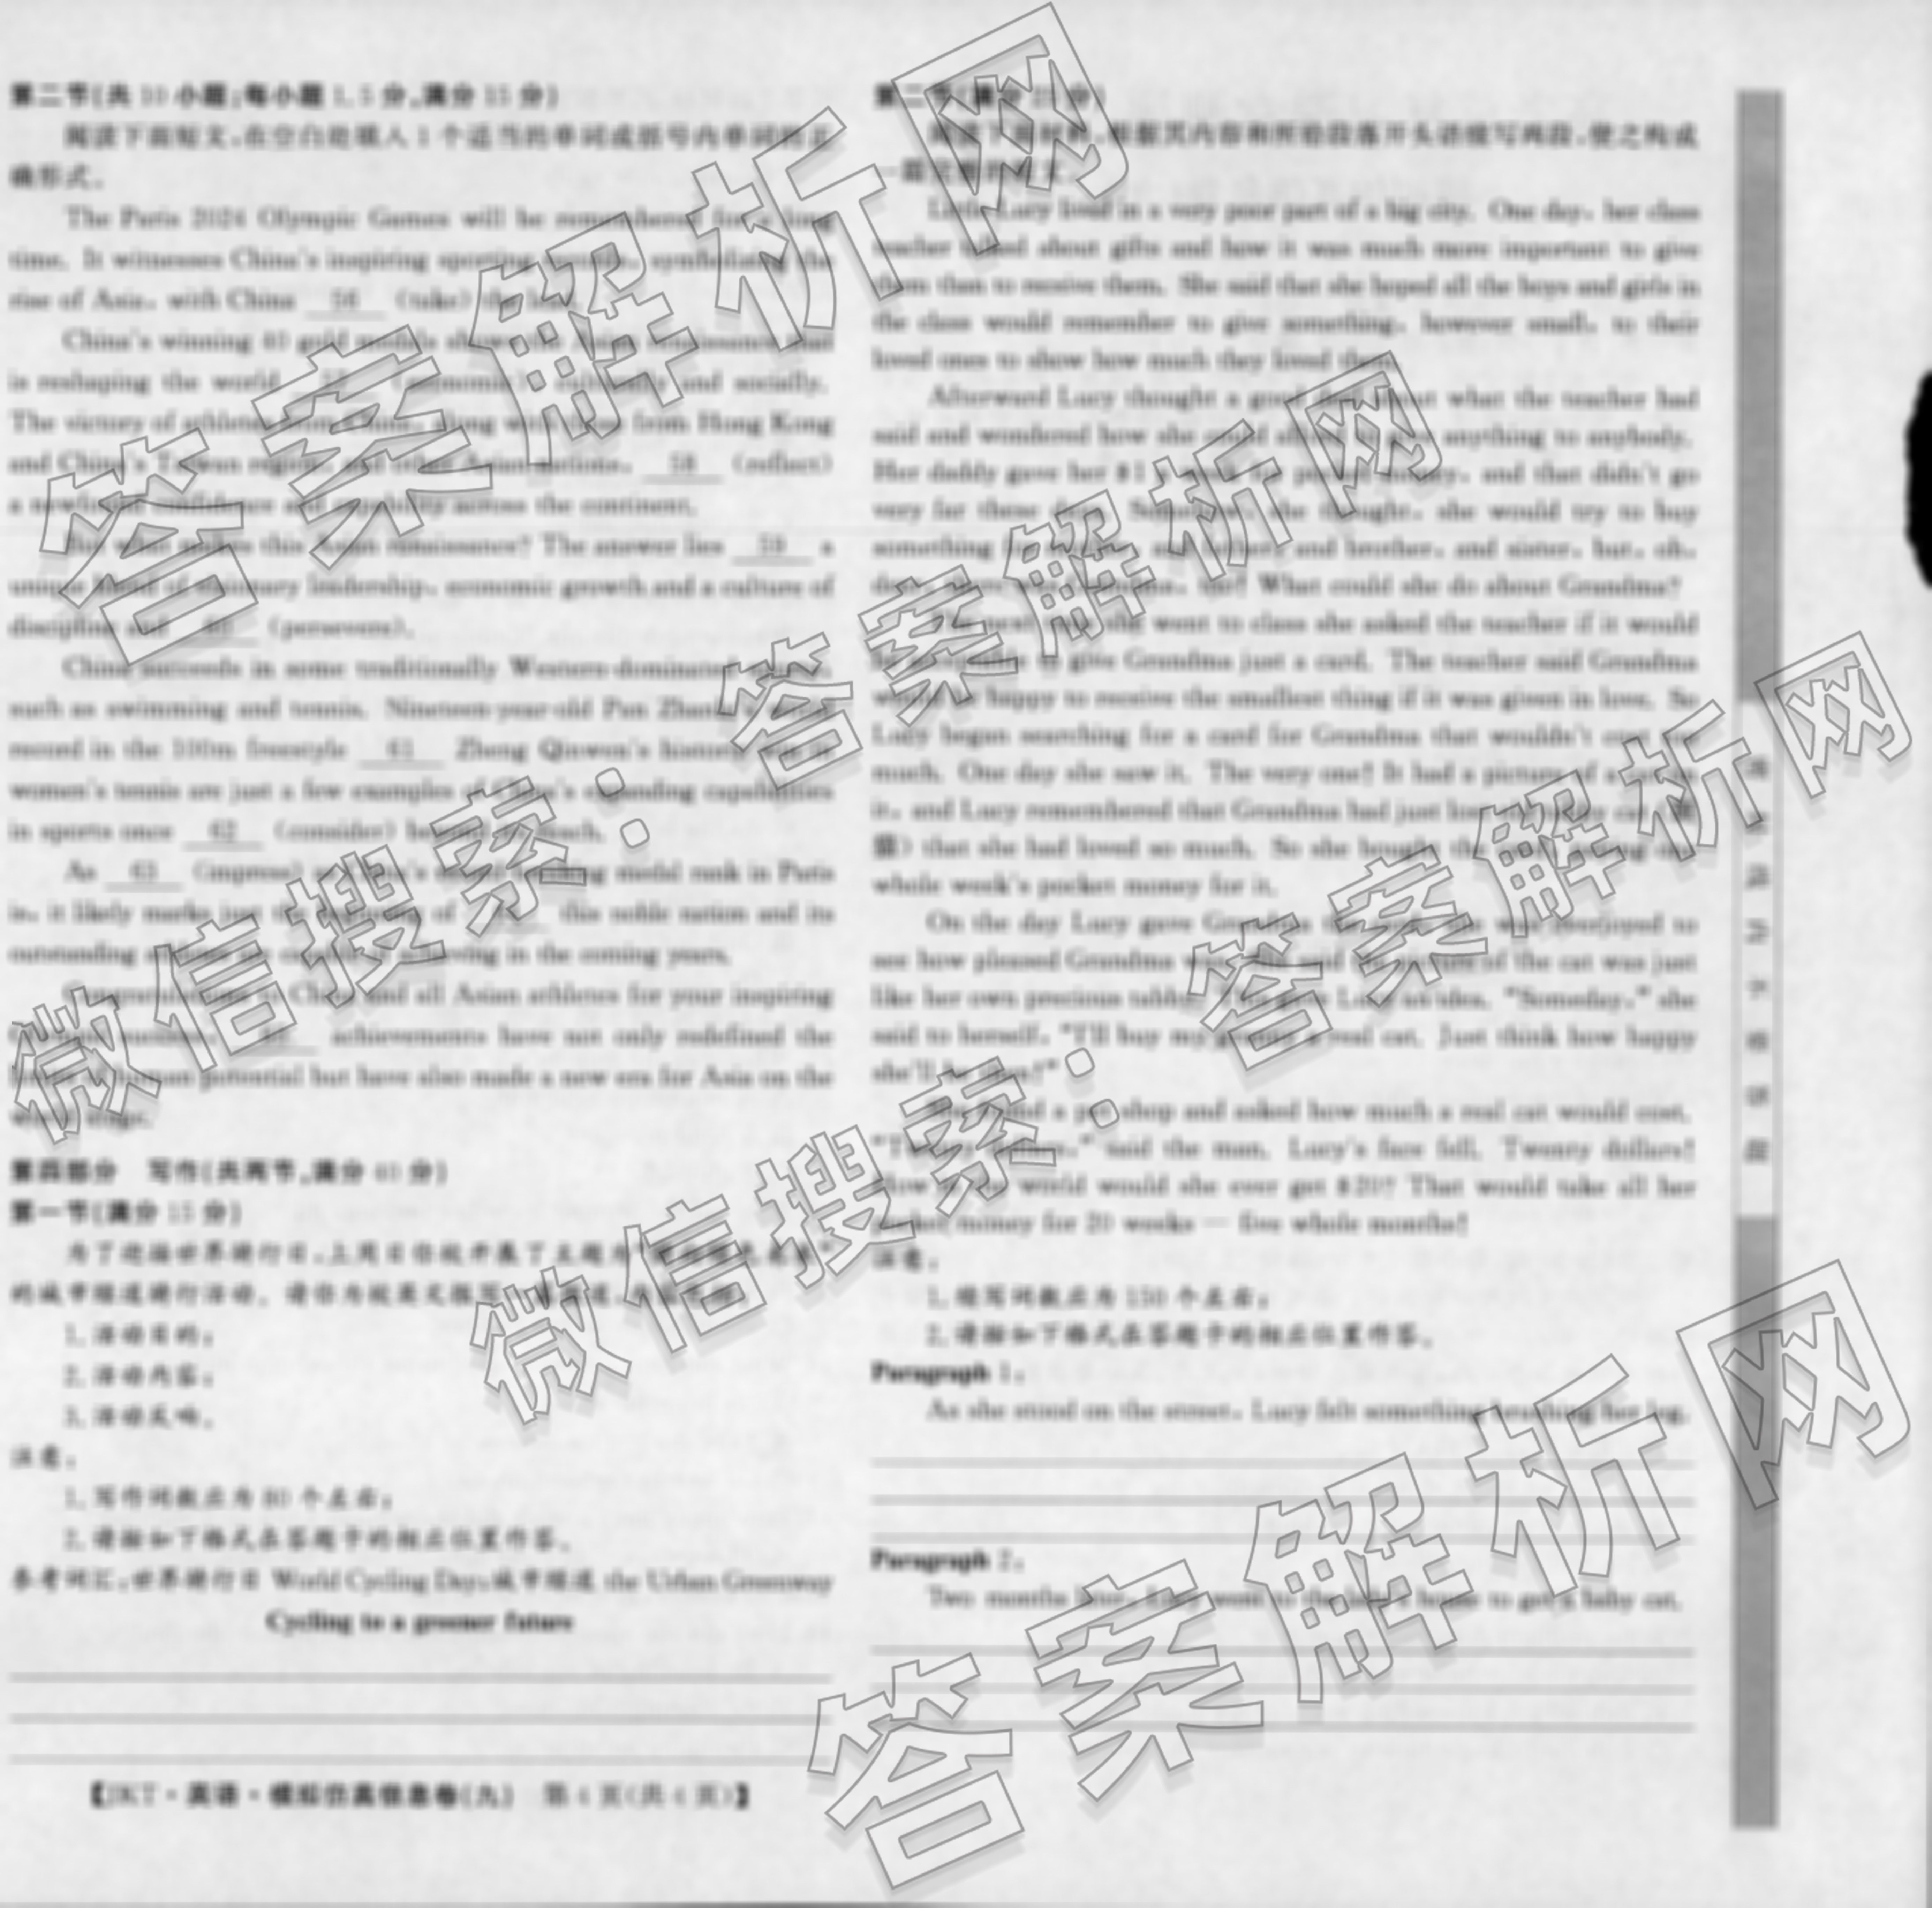 第二节(共 10 小题;每小题 1.5 分,满分 15 分)
阅读下面短文,在空白处填入 1 个适当的单词或括号内单词的正
确形式。
The Paris 2024 Olympic Games will be remembered for a long
time. It witnesses China's inspiring sporting symbolizing the
rise of Asia, with China 56 (take) the lead.
China's winning 40 gold medals shows the Asian renaissance that
is reshaping the world 57 (economic), culturally and socially.
The victory of athletes from China, along with those from Hong Kong
and China's Taiwan region, and other Asian nations, 58 (reflect)
a newfound confidence and capability across the continent.
But what makes this Asian renaissance? The answer lies 59 a
unique blend of visionary leadership, economic growth and a culture of
discipline and 60 (persevere).
China succeeds in some traditionally Western-dominated sports,
such as swimming and tennis. Nineteen-year-old Pan Zhanle's
record in the 100m freestyle 61 Zheng Qinwen's historic win in
women's tennis are just a few examples of China's expanding capabilities
in sports once 62 (consider) beyond its reach.
As 63 (impress) as China's medal rank in Paris
is, it likely marks just the beginning of 64 this noble nation and its
outstanding athletes are capable of achieving in the coming years.
Congratulations to China and all Asian athletes for your inspiring
65 achievements have not only redefined the
of human potential but have also made a new era for Asia on the
world stage.
第四部分 写作(共两节,满分 40 分)
第一节(满分 15 分)
为了迎接世界骑行日,上周日你校开展了主题为
的城市绿道骑行活动。请你为校英文报写一篇报道,
1. 活动目的;
2. 活动内容;
3. 活动反响。
注意:
1. 写作词数应为 80 个左右;
2. 请按如下格式在答题卡的相应位置作答。
参考词汇:世界骑行日 World Cycling Day;城市绿道 the Urban Greenway
Cycling to a greener future
【JKT·英语·模拟仿真信息卷(九) 第 4 页(共 4 页)】
第二节(满分 25 分)
阅读下面材料,根据其内容和所给段落开头语续写两段,使之构成
一篇完整的短文。
Little Lucy lived in a very poor part of a big city. One day, her class
teacher talked about gifts and how it was much more important to give
them than to receive them. She said that she hoped all the boys and girls in
the class would remember to give something, however small, to their
loved ones to show how much they loved them.
Afterward Lucy thought a good deal about what the teacher had
said and wondered how she could afford to give anything to anybody.
Her daddy gave her $1 a week for pocket money, and that didn't go
very far these days. Somehow, she thought, she would try to buy
something for mother, and father, and brother, and sister, but, oh,
dear, there was Grandma, too! What could she do about Grandma?
The next time she went to class she asked the teacher if it would
be acceptable to give Grandma just a card. The teacher said Grandma
would be happy to receive the smallest thing if it was given in love. So
Lucy began searching for a card for Grandma that wouldn't cost too
much. One day she saw it. The very one! It had a picture of a cat on
it, and Lucy remembered that Grandma had just lost a tabby cat
that she had loved so much. So she bought the card, giving one
whole week's pocket money for it.
On the day Lucy gave Grandma the card, she was overjoyed to
see how pleased Grandma was. She said the picture of the cat was just
like her own precious tabby. This gave Lucy an idea. "Someday," she
said to herself, "I'll buy my granny a real cat. Just think how happy
she'll be then!"
She found a pet shop and asked how much a real cat would cost.
"Twenty dollars," said the man. Lucy's face fell. Twenty dollars!
How in the world would she ever get $20? That would take all her
pocket money for 20 weeks — five whole months!
注意:
1. 续写词数应为 150 个左右;
2. 请按如下格式在答题卡的相应位置作答。
Paragraph 1:
As she stood on the street, Lucy felt something brushing her leg.
Paragraph 2:
Two months later, Lucy went to the lady's house to get a baby cat.
答案解析网
微信搜索:答案解析网
微信搜索:答案解析网
答案解析网